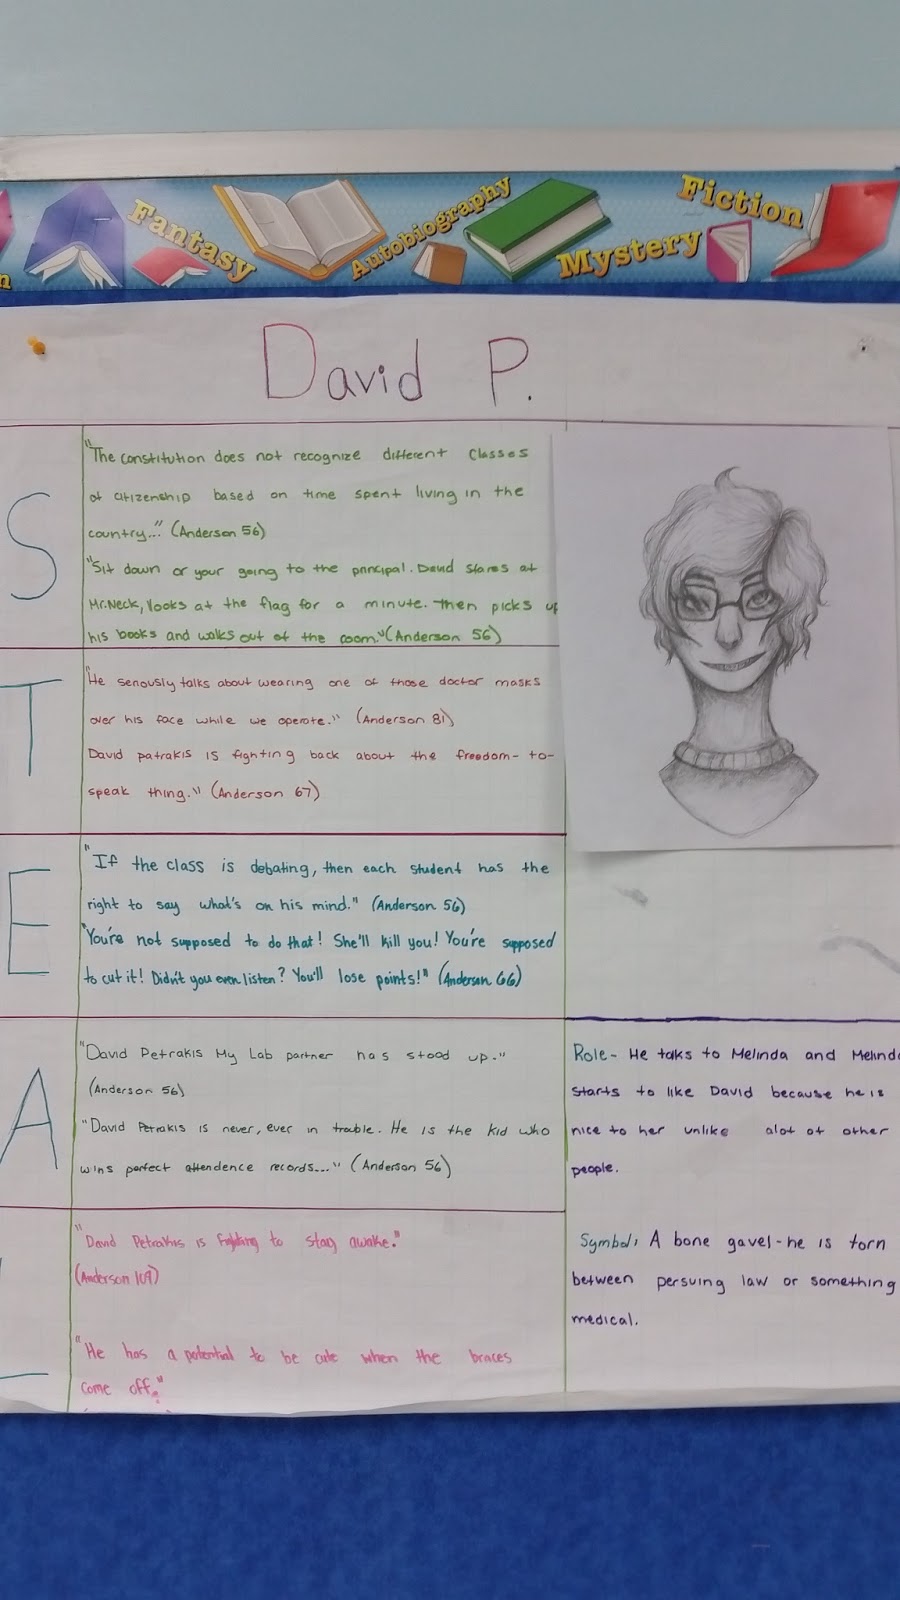 n
Fantasy
Autobiography
Mystery
Fiction
David P.
S
"The constitution does not recognize different classes
of citizenship based on time spent living in the
country..." (Anderson 56)
"Sit down or your going to the principal. David stares at
Mr.Neck, looks at the flag for a minute. Then picks up
his books and walks out of the room." (Anderson 56)
T
"He seriously talks about wearing one of those doctor masks
over his face while we operate." (Anderson 81)
David patrakis is fighting back about the freedom-to-
speak thing." (Anderson 67)
E
"If the class is debating, then each student has the
right to say what's on his mind." (Anderson 56)
"You're not supposed to do that! She'll kill you! You're supposed
to cut it! Didn't you even listen? You'll lose points!" (Anderson 66)
A
"David Petrakis My Lab partner has stood up."
(Anderson 56)
"David Petrakis is never, ever in trouble. He is the kid who
wins perfect attendence records..." (Anderson 56)
L
"David Petrakis is fighting to stay awake."
(Anderson 109)
"He has a potential to be cute when the braces
come off."
Role- He talks to Melinda and Melinda
starts to like David because he is
nice to her unlike alot of other
people.
Symbol: A bone gavel-he is torn
between persuing law or something
medical.